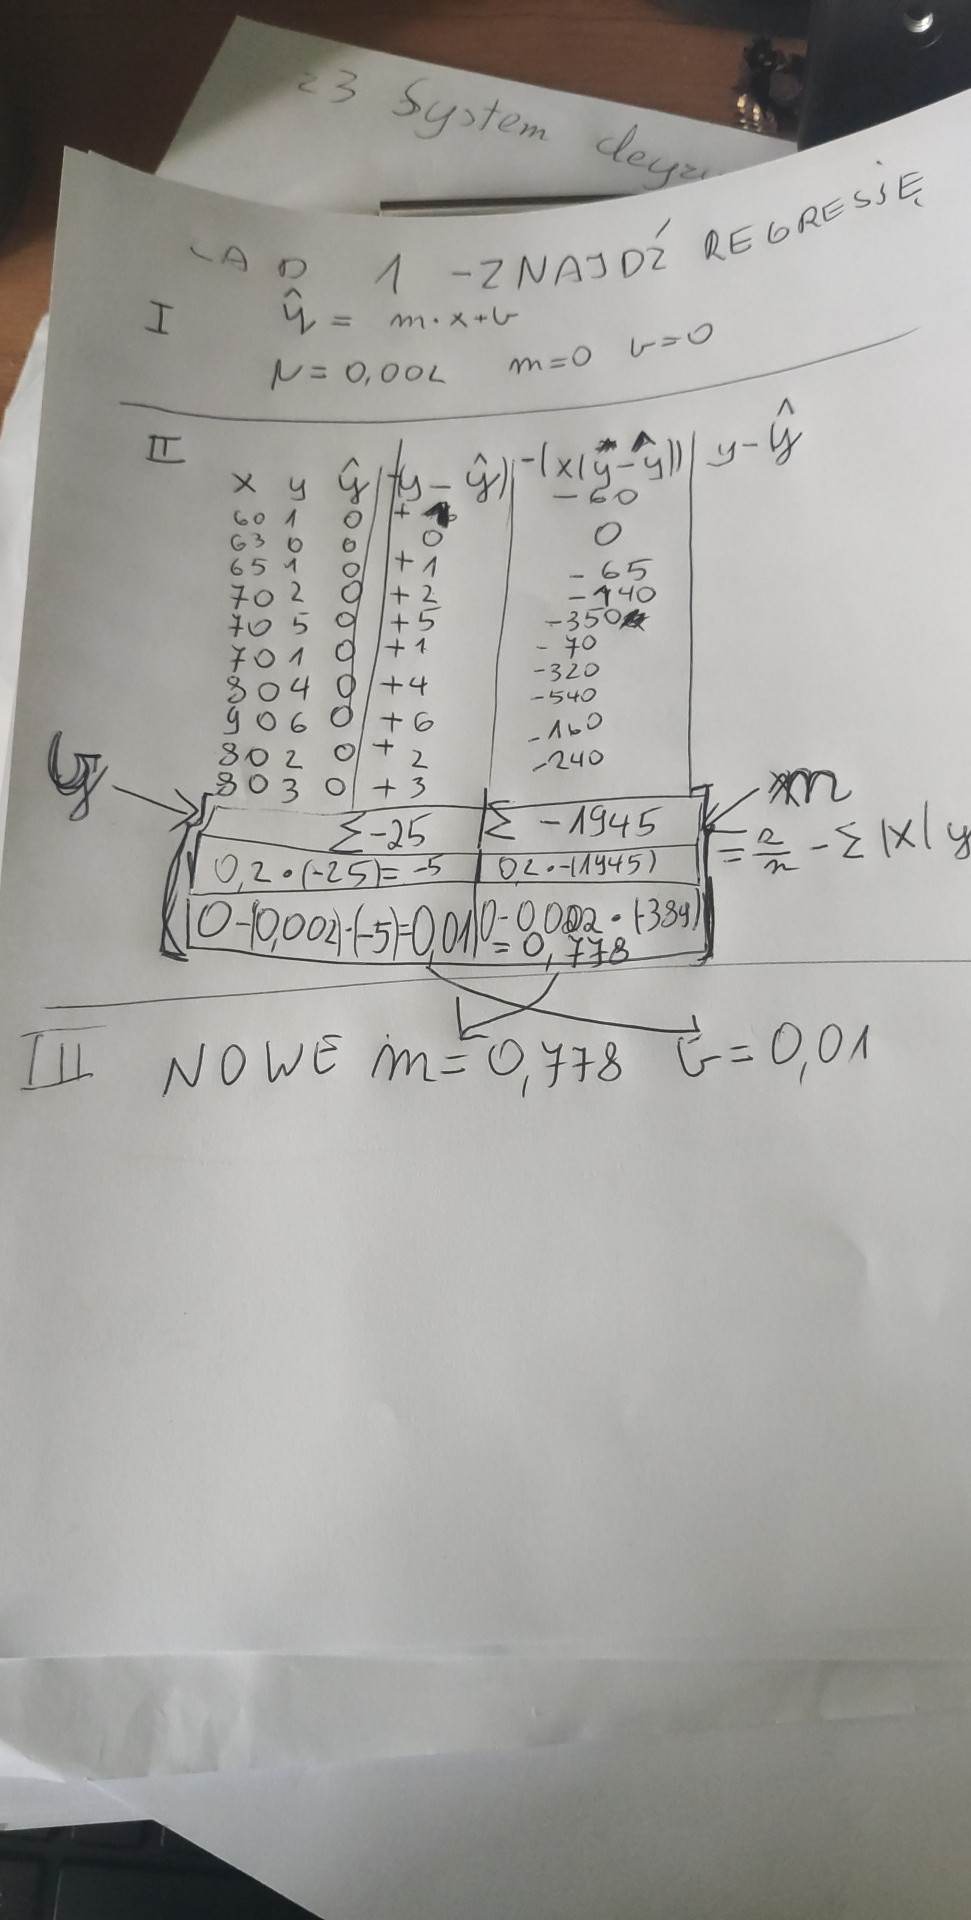 23 System
AD 1 - ZNAJDŹ REGRESJĘ
I ŷ = m·x+b
N = 0,002 m=0 b=0
II x y ŷ (y - ŷ) -(x(y-ŷ)) y - ŷ
60 1 0 + -60
63 0 0 0 0
65 1 0 +1 -65
70 2 0 +2 -140
70 5 0 +5 -350
70 1 0 +1 -70
80 4 0 +4 -320
90 6 0 +6 -540
80 2 0 +2 -160
80 3 0 +3 -240
Σ -25 Σ -1945 m
0,2·(-25)= -5 0,2·-(1945) = 2/n - Σ (x( y
0-(0,002)·(-5)=0,01 0-0,002·(-389)
= 0,778
III NOWE m= 0,778 b = 0,01